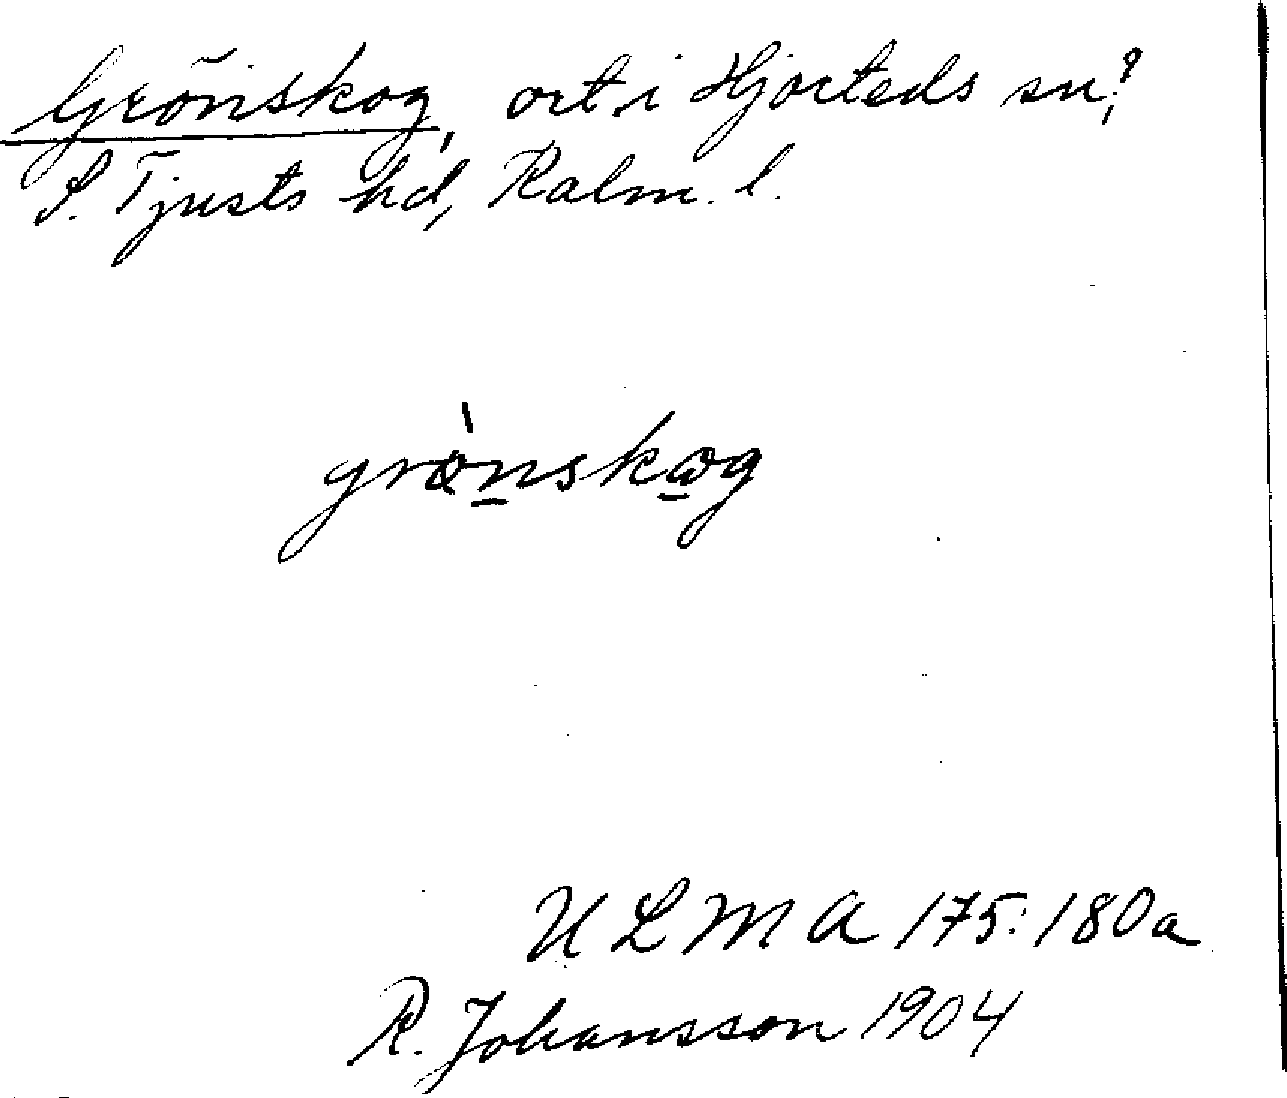 Grönskog, ort i Hjorteds sn?,
S. Tjusts hd, Kalm. l.
grö̀nskωg
ULMA 175:180a
R. Johansson 1904